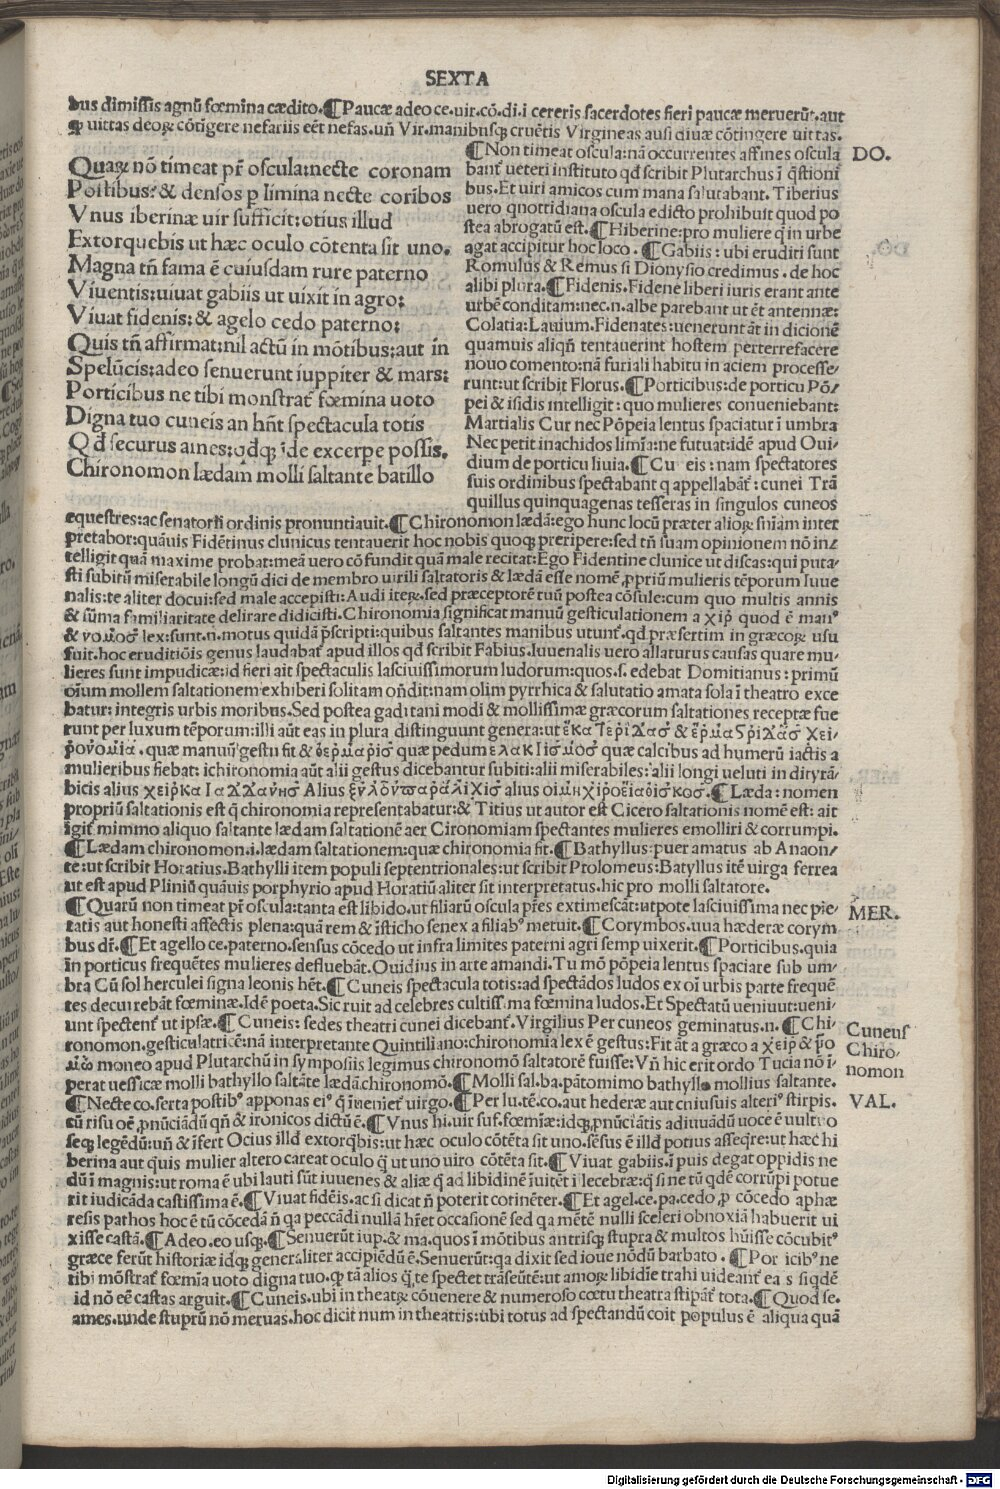 SEXTA
bus dimissis agnū fœmina cædito.¶Paucæ adeo ce.uir.cō.di.i cereris sacerdotes fieri paucæ meruerūt.aut
ꝙ uittas deoꝝ cōtīgere nefariis eēt nefas.uñ Vir.manibusqꝫ cruētis Virgineas ausi diuæ cōtingere uittas.
Quaꝝ nō timeat pr̄ oscula:necte coronam
Postibus:& densos ꝑ limina necte coribos
Vnus iberinæ uir sufficit:otius illud
Extorquebis ut hæc oculo cōtenta sit uno.
Magna tñ fama ē cuiusdam rure paterno
Viuentis:uiuat gabiis ut uixit in agro:
Viuat fidenis:& agelo cedo paterno:
Quis tñ affirmat:nil actū in mōtibus:aut in
Spelūcis:adeo senuerunt iuppiter & mars:
Porticibus ne tibi monstrat̄ fœmina uoto
Digna tuo cuneis an hñt spectacula totis
Qd̄ securus ames:qdqꝫ īde excerpe possis.
Chironomon lædam molli saltante batillo
¶Non timeat oscula:nā occurrentes affines oscula
bant̄ ueteri instituto qd scribit Plutarchus ī q̄stioni
bus.Et uiri amicos cum mana salutabant. Tiberius
uero quottidiana oscula edicto prohibuit quod po
stea abrogatū est.¶Hiberine:pro muliere q̄ in urbe
agat accipitur hoc loco.¶Gabiis:ubi eruditi sunt
Romulus & Remus si Dionysio credimus.de hoc
alibi plura.¶Fidenis.Fidene liberi iuris erant ante
urbē conditam:nec.n.albe parebant ut ēt antennæ:
Colatia:Lauium.Fidenates:uenerunt āt in dicionē
quamuis aliqñ tentauerint hostem perterrefacere
nouo comento:nā furiali habitu in aciem processe/
runt:ut scribit Florus.¶Porticibus:de porticu Pō/
pei & isidis intelligit:quo mulieres conueniebant:
Martialis Cur nec Pōpeia lentus spaciatur ī umbra
Nec petit inachidos limīa:ne futuat:idē apud Oui/
dium de porticu liuia.¶Cu eis:nam spectatores
suis ordinibus spectabant q appellabāt̄:cunei Trā
quillus quinquagenas tesseras in singulos cuneos
DO.
equestres:ac senatorii ordinis pronuntiauit.¶Chironomon lædā:ego hunc locū præter alioꝝ sniam inter
pretabor:quāuis Fidētinus clunicus tentauerit hoc nobis quoqꝫ preripere:sed tñ suam opinionem nō in/
telligit quā maxime probat:meā uero cōfundit quā male recitat:Ego Fidentine clunice ut discas:qui puta/
sti subitū miserabile longū dici de membro uirili saltatoris & lædā esse nomē ꝓpriū mulieris tēporum Iuue
nalis:te aliter docui:sed male accepisti:Audi iteꝝ.sed præceptorē tuū postea cōsule:cum quo multis annis
& sūma familiaritate delirare didicisti.Chironomia significat manuū gesticulationem a χιρ quod ē manꝰ
& νομοσ lex:sunt.n.motus quidā pscripti:quibus saltantes manibus utunt̄.qd præsertim in græcoꝝ usu
fuit.hoc eruditiōis genus laudabat̄ apud illos qd scribit Fabius.Iuuenalis uero allaturus causas quare mu/
lieres sunt impudicæ:id fieri ait spectaculis lasciuissimorum ludorum:quos.s.edebat Domitianus:primū
oīum mollem saltationem exhiberi solitam oñdit:nam olim pyrrhica & salutatio amata sola ī theatro exce
batur:integris urbis moribus.Sed postea gaditani modi & mollissimæ græcorum saltationes receptæ fue
runt per luxum tēporum:illi aūt eas in plura distinguunt genera:ut
quæ manuū gestu fit & quæ pedum quæ calcibus ad humerū iactis a
mulieribus fiebat: ichironomia aūt alii gestus dicebantur subiti:alii miserabiles:alii longi ueluti in dityrā/
bicis alius Alius alius ¶Læda:nomen
propriū saltationis est q̄ chironomia representabatur:& Titius ut autor est Cicero saltationis nomē est:ait
igit̄ mimmo aliquo saltante lædam saltationē aer Cironomiam spectantes mulieres emolliri & corrumpi.
¶Lædam chironomon.i.lædam saltationem:quæ chironomia fit.¶Bathyllus:puer amatus ab Anaon/
te:ut scribit Horatius.Bathylli item populi septentrionales:ut scribit Ptolomeus:Batyllus itē uirga ferrea
ut est apud Pliniū quāuis porphyrio apud Horatiū aliter sit interpretatus.hic pro molli saltatore.
¶Quarū non timeat pr̄ oscula:tanta est libido.ut filiarū oscula pr̄es extimescāt:utpote lasciuissima nec pie/
tatis aut honesti affectis plena:quā rem & īsticho senex a filiabꝰ metuit.¶Corymbos.uua hæderæ corym
bus dr̄.¶Et agello ce.paterno.sensus cōcedo ut infra limites paterni agri semp uixerit.¶Porticibus.quia
in porticus frequētes mulieres defluebāt.Ouidius in arte amandi.Tu mō pōpeia lentus spaciare sub um/
bra Cū sol herculei signa leonis hēt.¶Cuneis spectacula totis:ad spectādos ludos ex oī urbis parte frequē
tes decurebāt fœminæ.Idē poeta.Sic ruit ad celebres cultiss.ma fœmina ludos.Et Spectatū ueniuut:ueni/
unt spectent̄ ut ipsæ.¶Cuneis: sedes theatri cunei dicebant̄.Virgilius Per cuneos geminatus.n.¶Chi/
ronomon.gesticulatricē:nā interpretante Quintiliano:chironomia lex ē gestus:Fit āt a græco a χειρ &
moneo apud Plutarchū in symposiis legimus chironomō saltatorē fuisse:Vñ hic erit ordo Tucia nō ī/
perat uessicæ molli bathyllo saltāte lædā.chironomō.¶Molli sal.ba.pātomimo bathyllo mollius saltante.
MER.
Cuneus
Chiro/
nomon
¶Necte co.serta postibꝰ apponas eiꝰ q̄ īueniet̄ uirgo.¶Per lu.tē.co.aut hederæ aut cniusuis alteriꝰ stirpis.
cū risu oē ꝓnūciādū qñ & ironicos dictū ē.¶Vnus hi.uir suf.fœmiæ:idqꝫ,ꝓnūciātis adiuuādū uoce ē uultuo
seqꝫ legēdū:uñ & īfert Ocius illd extorq̄bis:ut hæc oculo cōtēta sit uno.sēsus ē illd potius asseqre:ut hæc hi
berina aut quis mulier altero careat oculo q̄ ut uno uiro cōtēta sit.¶Viuat gabiis.ī puis degat oppidis ne
dū ī magnis:ut roma ē ubi lauti sūt iuuenes & aliæ q̄ ad libidinē īuitēt īlecebræ:q̄ si ne tū qdē corrūpi potue
rit iudicāda castissima ē.¶Viuat fidēis.ac si dicat ñ poterit cotinēter.¶Et agel.ce.pa.cedo ꝓ cōcedo aphæ
resis pathos hoc ē tū cōcedā ñ qa peccādi nullā hr̄et occasionē sed qa mētē nulli sceleri obnoxiā habuerit ui
xisse castā.¶Adeo.eo usqꝫ.¶Senuerūt iup.& ma.quos ī mōtibus antrisqꝫ stupra & multos hūisse cōcubitꝰ
græce ferūt historiæ idqꝫ generaliter accipiēdū ē.Senuerūt:qa dixit sed ioue nōdū barbato.¶Por icibꝰ ne
tibi mōstrat̄ fœmīa uoto digna tuo.ꝙ tā alios q̄ te spectet trāseūtē:ut amoꝝ libidīe trahi uideant̄ ea s siqdē
id nō eē castas arguit.¶Cuneis.ubi in theatꝝ cōuenere & numeroso cœtu theatra stipāt̄ tota.¶Quod se.
ames.unde stuprū nō metuas.hoc dicit num in theatris:ubi totus ad spectandū coit populus ē aliqua quā
VAL.
Digitalisierung gefördert durch die Deutsche Forschungsgemeinschaft - DFG